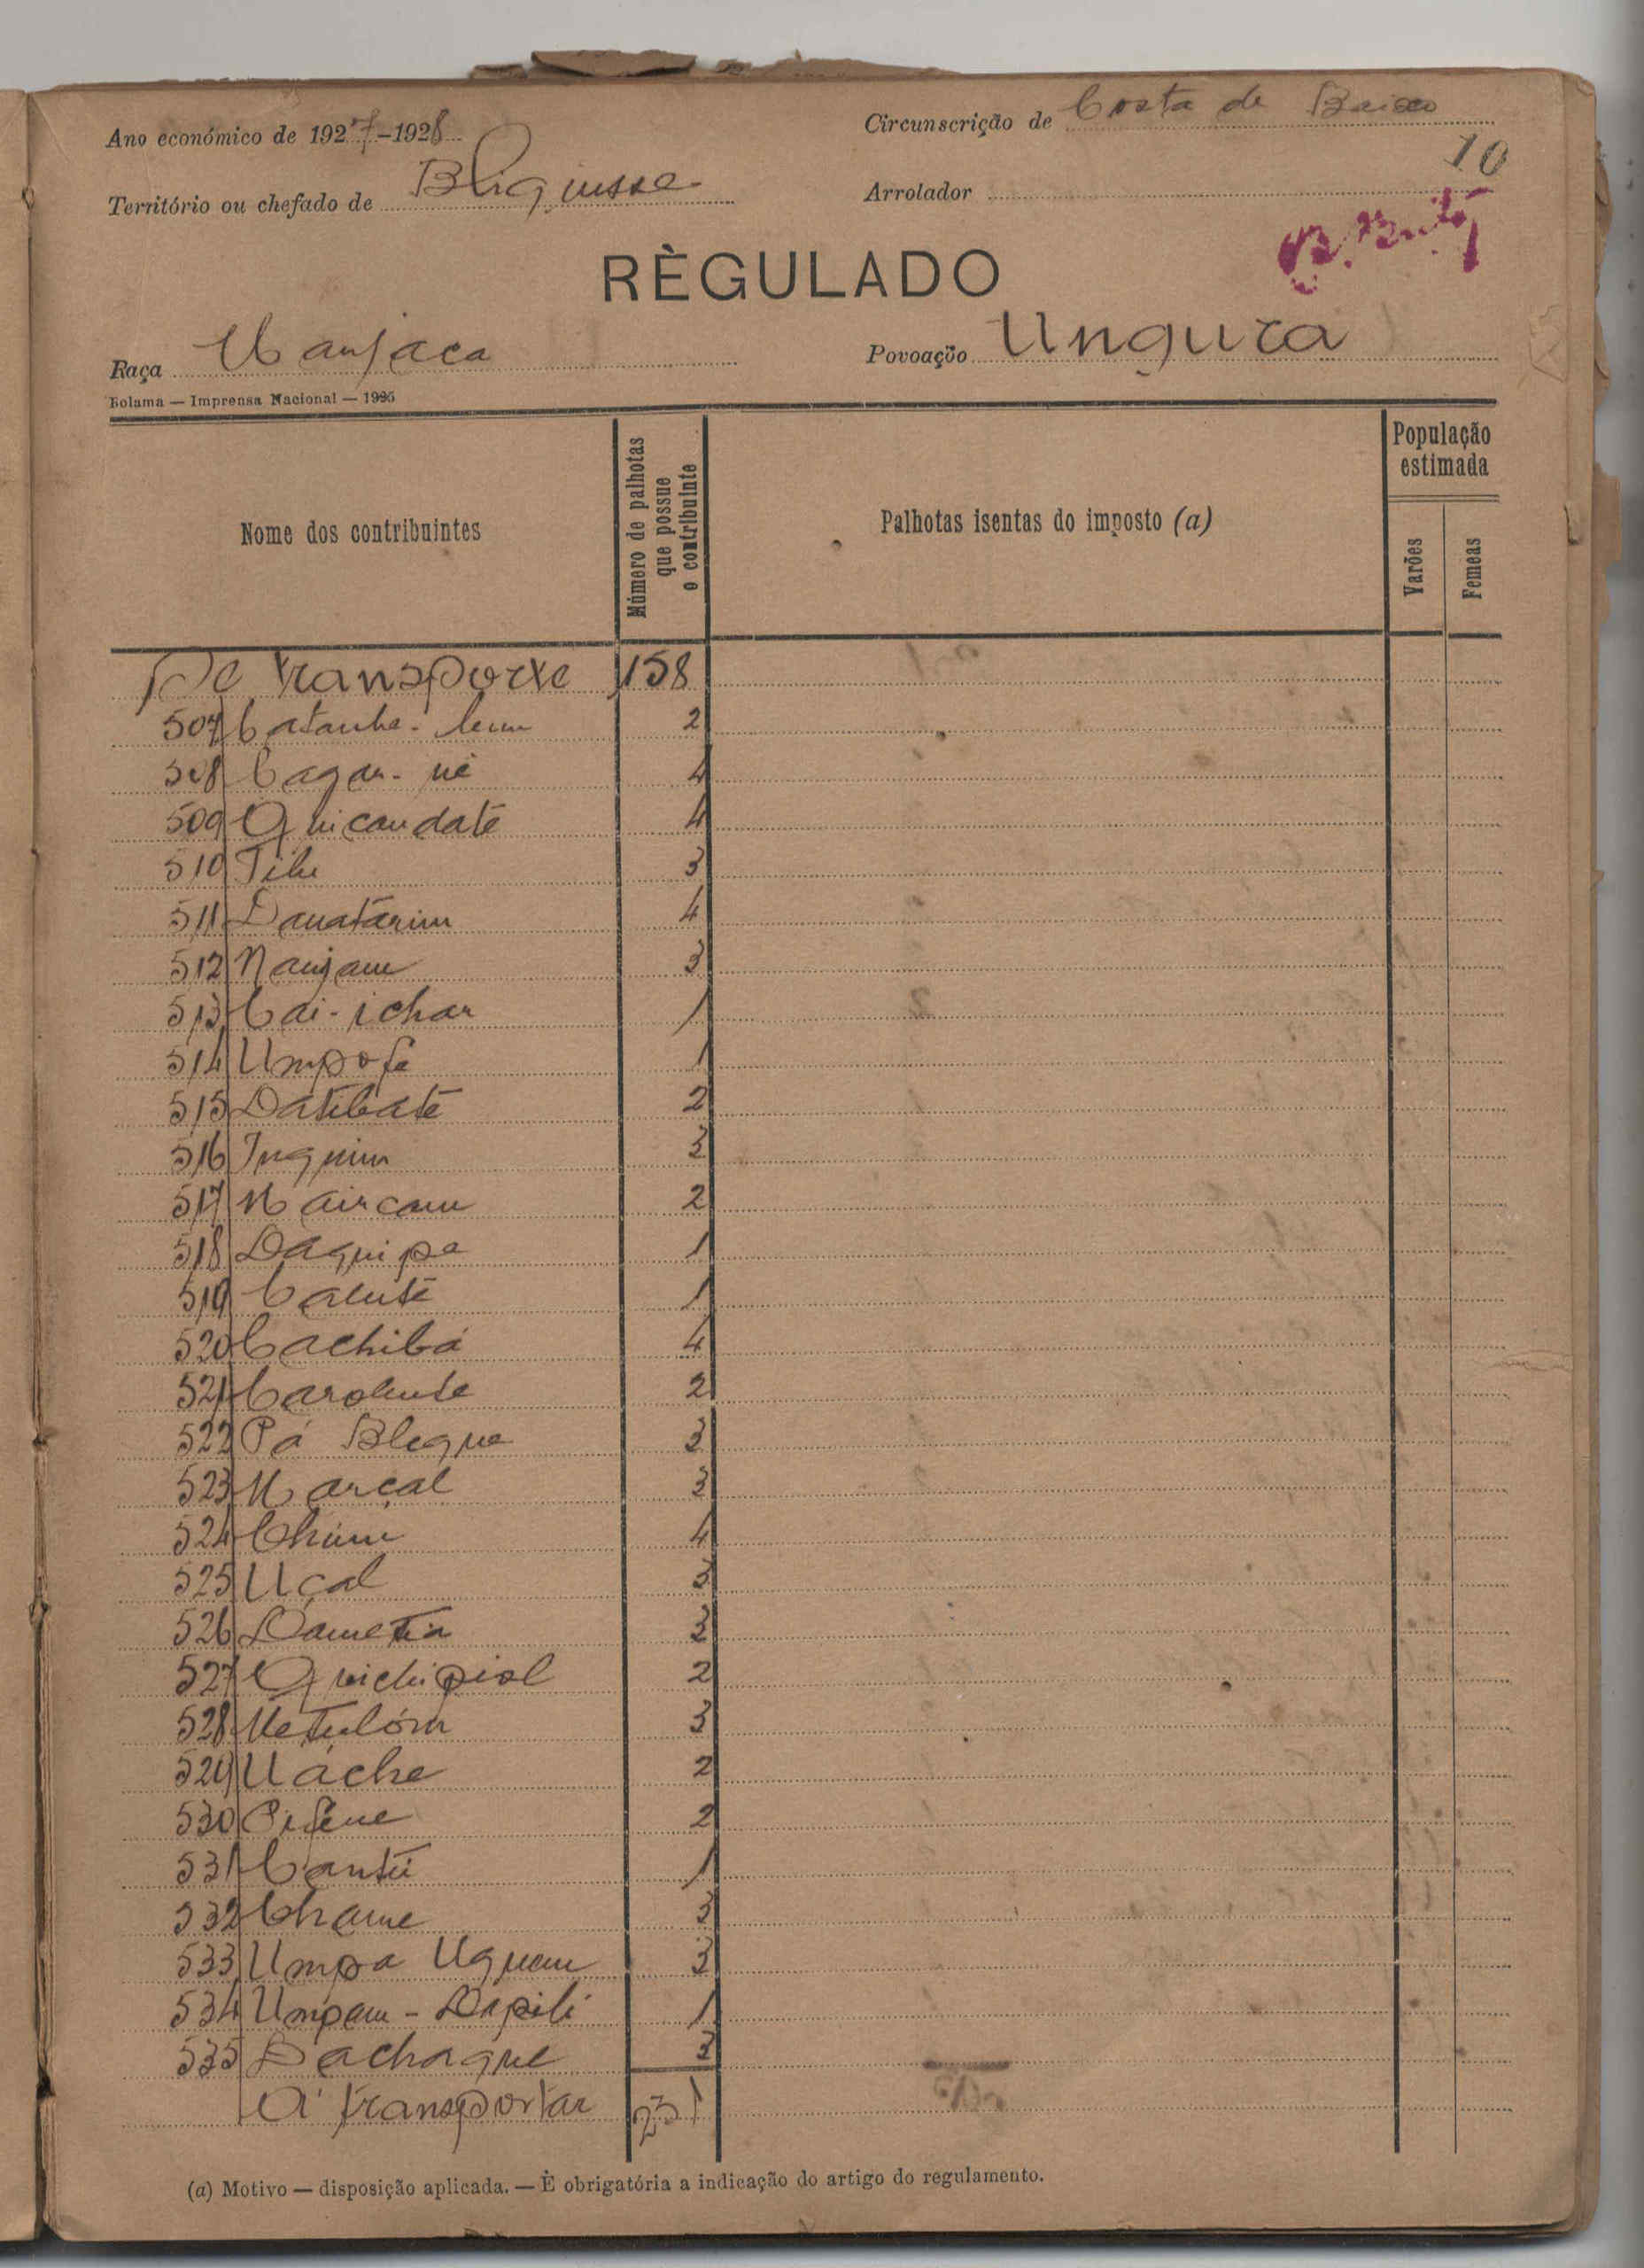 Ano económico de 1927-1928
Circunscrição de Costa de Baixo
10
Território ou chefado de Bliquisse
Arrolador
RÈGULADO
Raça Manjaca
Povoação Ungura
Bolama — Imprensa Nacional — 1925
Nome dos contribuintes
Número de palhotas que possue o contribuinte
Palhotas isentas do imposto (a)
População estimada
Varões
Femeas
De transporte 158
507 Catanha- 2
508 Cagan- né 4
509 Quicandaté 4
510 3
511 Danatárim 4
512 Nanjam 3
513 Cai-ichar 1
514 Umpofe 1
515 Datibaté 2
516 Inquim 3
517 Maircam 2
518 Daquipa 1
519 Calute 1
520 Cachibá 4
521 Carolente 2
522 Pá Bleque 3
523 Marçal 3
524 4
525 Uçal 3
526 3
527 Quichipiol 2
528 Netulóm 3
529 Uáche 2
530 2
531 Cantú 1
532 Chame 3
533 Umpa Uquem 3
534 Umpam - Dapili 1
535 Dachaque 3
A transportar 231
(a) Motivo — disposição aplicada. — È obrigatória a indicação do artigo do regulamento.